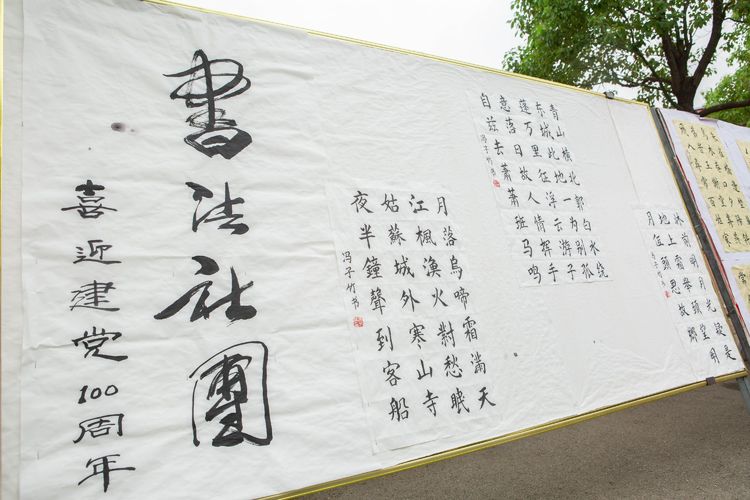 書法社團
喜迎建党100周年
月落烏啼霜滿天
江楓漁火對愁眠
姑蘇城外寒山寺
夜半鐘聲到客船
冯子竹书
青山横北郭白水绕
东城此地一为别孤
蓬万里征浮云游子
意落日故人情挥手
自兹去萧萧班马鸣
冯子竹书
牀前明月光疑是
地上霜举頭望明
月低頭思故鄉
冯子竹书